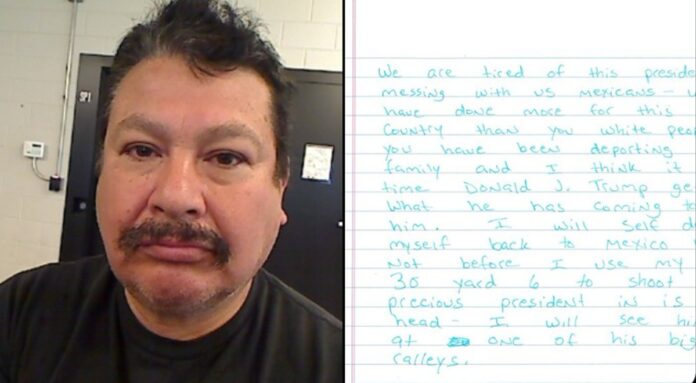 We are tired of this preside
messing with us mexicans -
have done more for this
Country than you white
you have been deporting
family and I think it
time Donald J. Trump ge
what he has coming to
him. I will self d
myself back to Mexico
Not before I use my
30 yard 6 to shoot
precious president in is
head - I will see hi
at one of his big
ralleys.